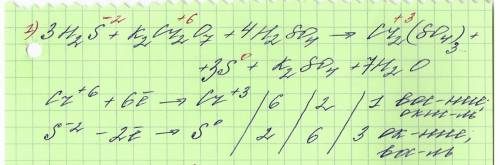 1) 3H₂S⁻² + K₂Cr₂⁺⁶O₇ + 4H₂SO₄ → Cr₂⁺³(SO₄)₃ +
+3S⁰ + K₂SO₄ + 7H₂O
Cr⁺⁶ + 6ē → Cr⁺³ / 6 / 2 / 1 вос-ние,
ок-ль,
S⁻² - 2ē → S⁰ / 2 / 6 / 3 ок-ние,
вос-ль